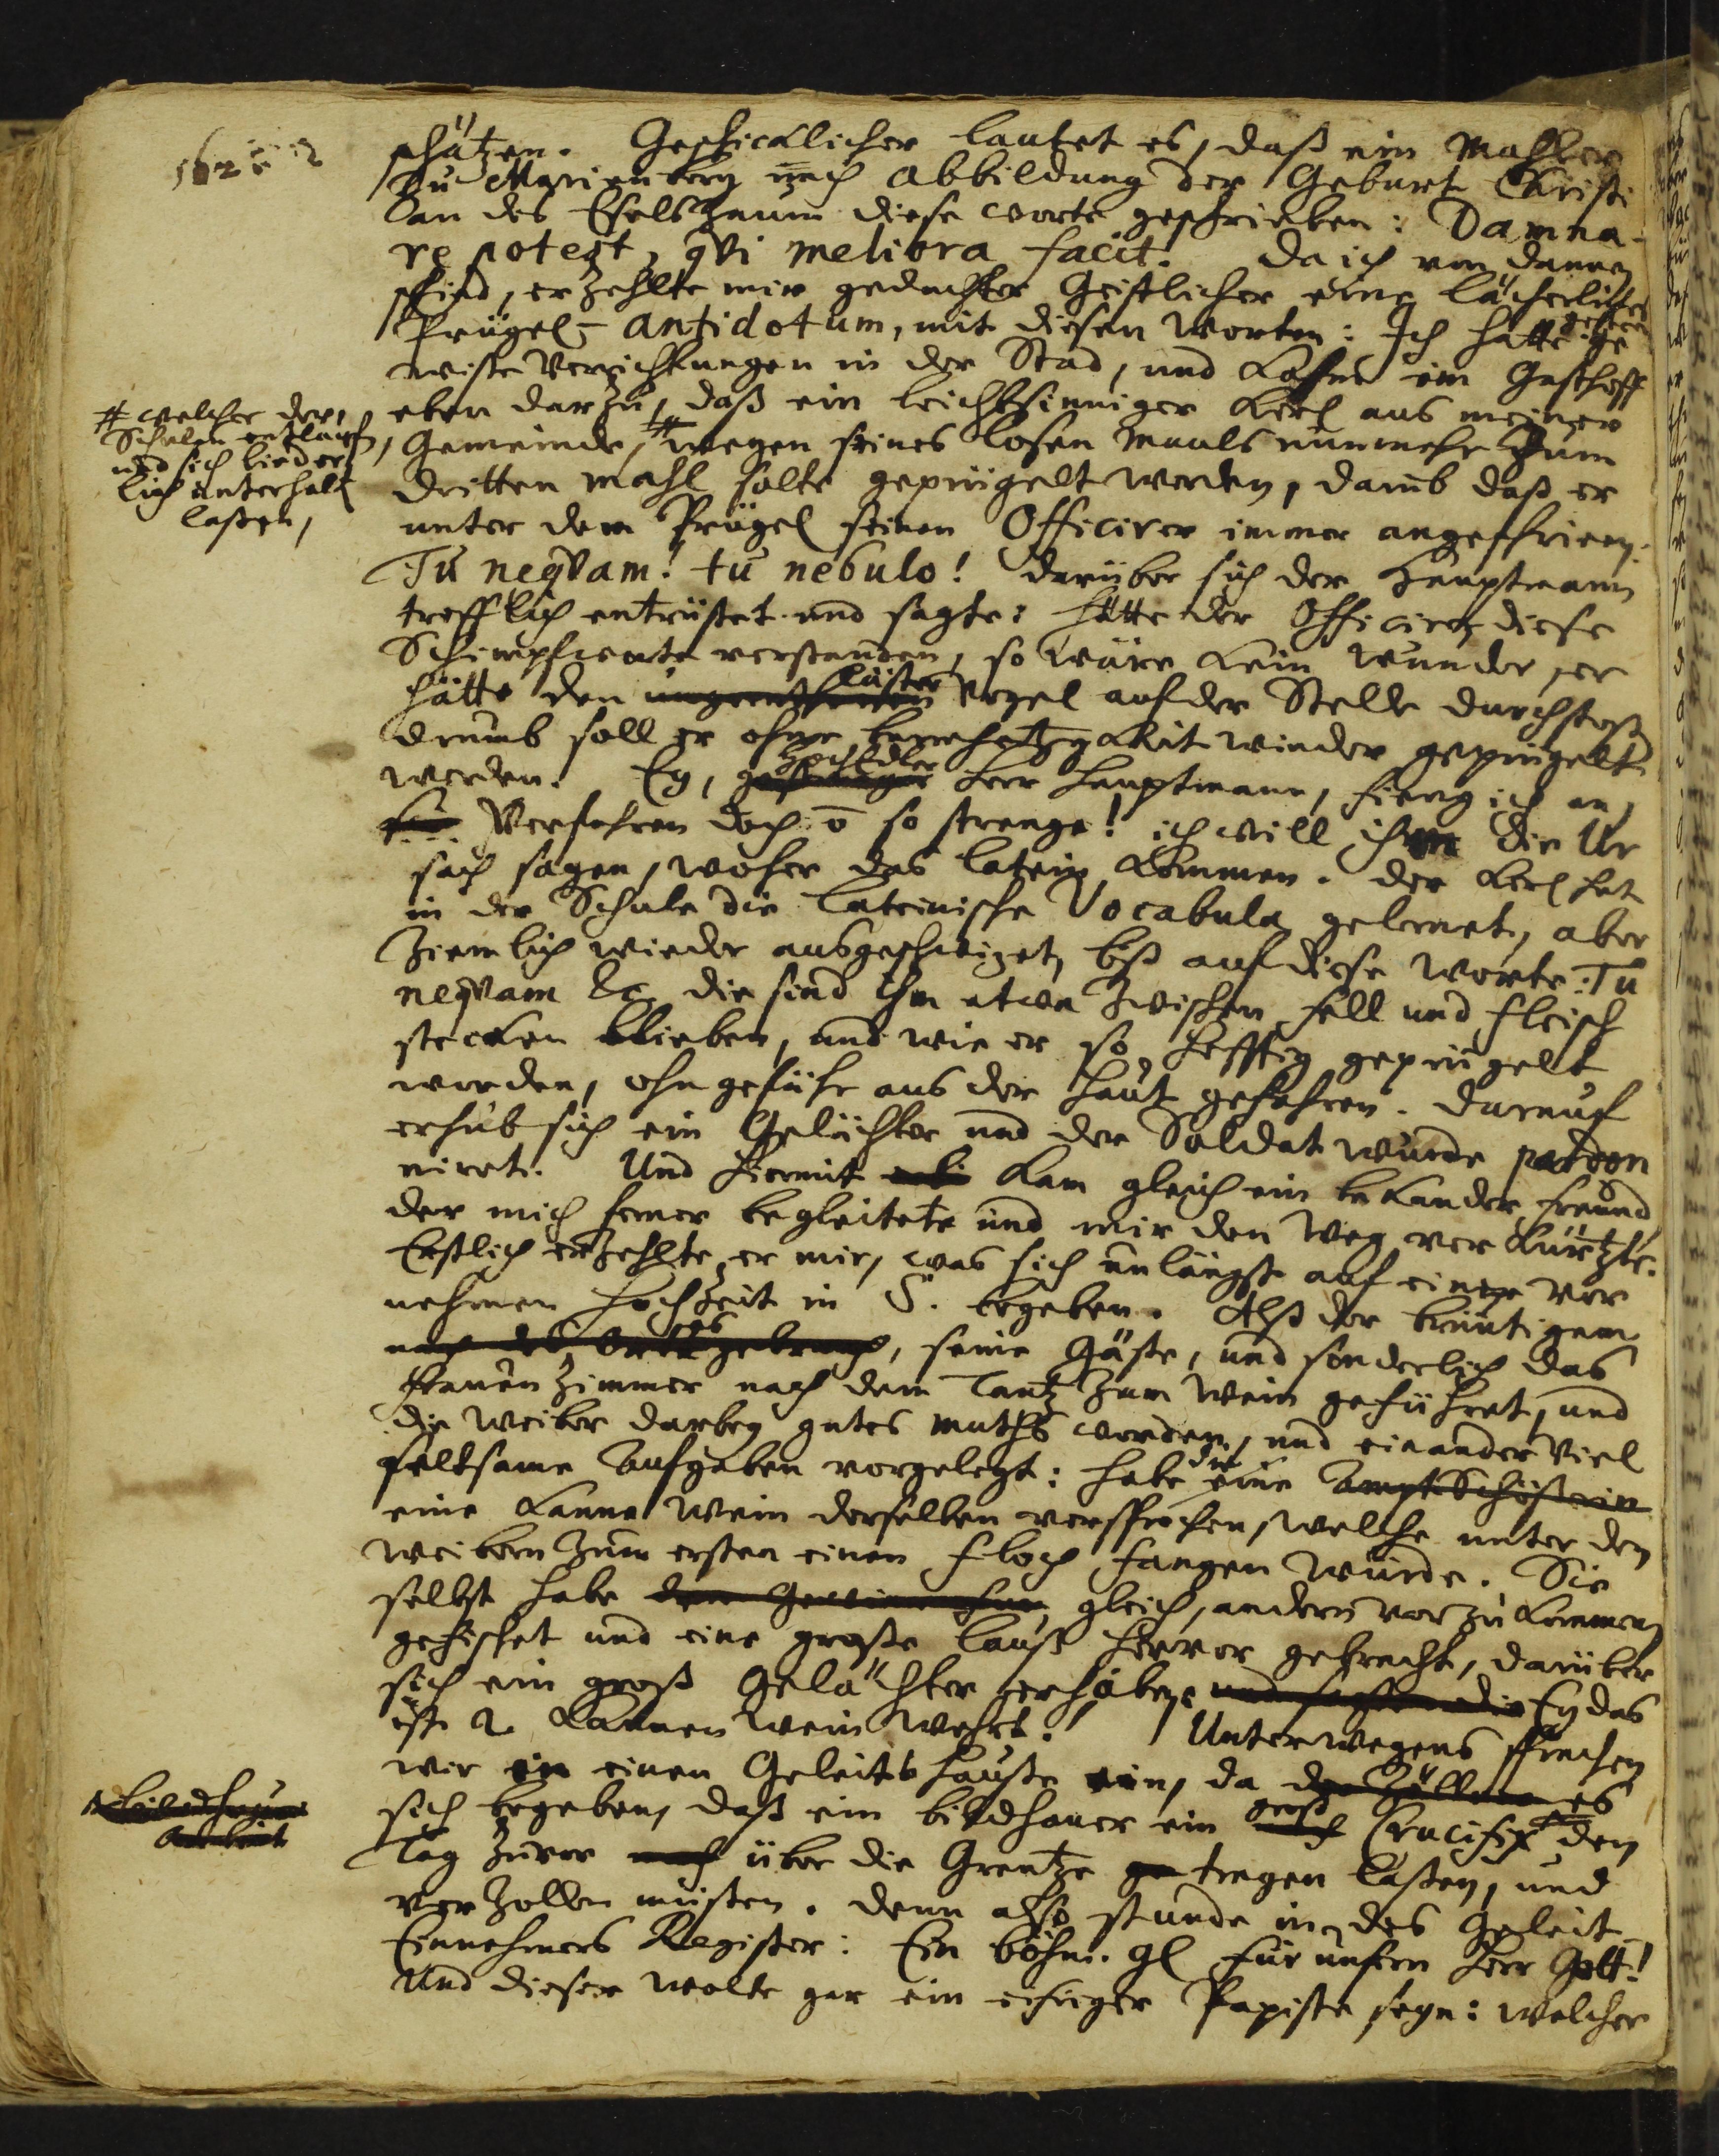 schätzen. Geschicklicher lautet es, daß ein Mahler
zu Marienberg nach Abbildung der Geburt Christi
an des Esels zaum diese worte geschrieben: Damna-
re potest, qvi meliora facit. Da ich von dannen
schied, erzehlte mir gedachter Geistlicher eine lächerliche
Prügel-antidotum, mit diesen Worten: Ich hatte ge
wiße Verrichtungen in der Stad, und kahme im Gasthoff
eben darzu, daß ein leichtsinniger Kerl aus meiner
# welcher der
Schulen entlauffen,
und sich lieder
lich unterhalt
laßen,
Gemeinde, # wegen seines losen Mauls nunmehr zum
dritten mahl solte geprügelt werden, darüb daß er
unter dem Prügel seinen Officirer immer angeschrieen:
Tu neqvam! tu nebulo! darüber sich der Hauptmann
trefflich entrüstet und sagte: hätte der Officirer diese
Schimpfworte verstanden, so wäre kein wunder, er
läster
hätte den Vogel auf der Stelle durchstoßen
drumb soll er ohne barmhertzigkeit wieder geprügelt
HochEdler
werden. Ey, Herr Hauptmann, fieng ich an,
Verfahren doch ō so strenge! ich will ihm die Ur
sach sagen, woher das latein kommen. der Kerl hat
in der Schule die lateinische Vocabula gelernet, aber
ziemlich wieder ausgeschwizet, biß auf diese worte: Tu
neqvam &c. die sind ihm etwa zwischen fell und fleisch
stecken blieben, und wie er so hefftig geprügelt
worden, ohngefähr aus der haut gefahren. darauf
erhub sich ein Gelächter und der Soldat wurde pardon
niret. Und hiermit kam gleich ein bekander freund
der mich ferner begleitete und mir den Weg verkürtzte.
Erstlich erzehlte er mir, was sich unlängst auf einer vor
nehmen Hochzeit in S. begeben. Alß der bräutigam
nach des Orts gebrauch, seine Gäste, und sonderlich das
frauenzimmer nach dem Tantz zum Wein geführet, und
die Weiber darbey gutes muths worden, und einander viel
seltsame Aufgaben vorgelegt: habe eine AmptSchößerin
eine kanne Wein derselben versprochen, welche unter den
weibern zum ersten einen floch fangen würde. Sie
selbst habe gleich, andern vorzukommen
gefischet und eine große lauß hervor gebracht, darüber
sich ein groß Gelächter erhaben, Ey das
ist 2 kannen wein wehrt. Unterwegens sprachen
wir in einen Geleitshauße ein, da es
groß
sich begeben, daß ein bildhauer ein Crucifix den
Tag zuvor über die Grentze tragen laßen, und
verzollen müsten. denn also stunde in des Geleit
Einnehmers Register: Ein böhm. gl für unsern Herr Gott!
Und dieser wolte gar ein eifriger Papiste seyn: welcher